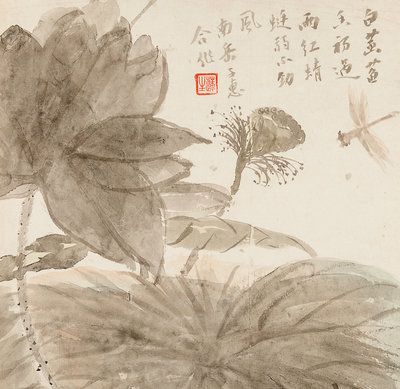 白菡萏
香初過
雨紅蜻
蜓弱不
風
南岳
合作